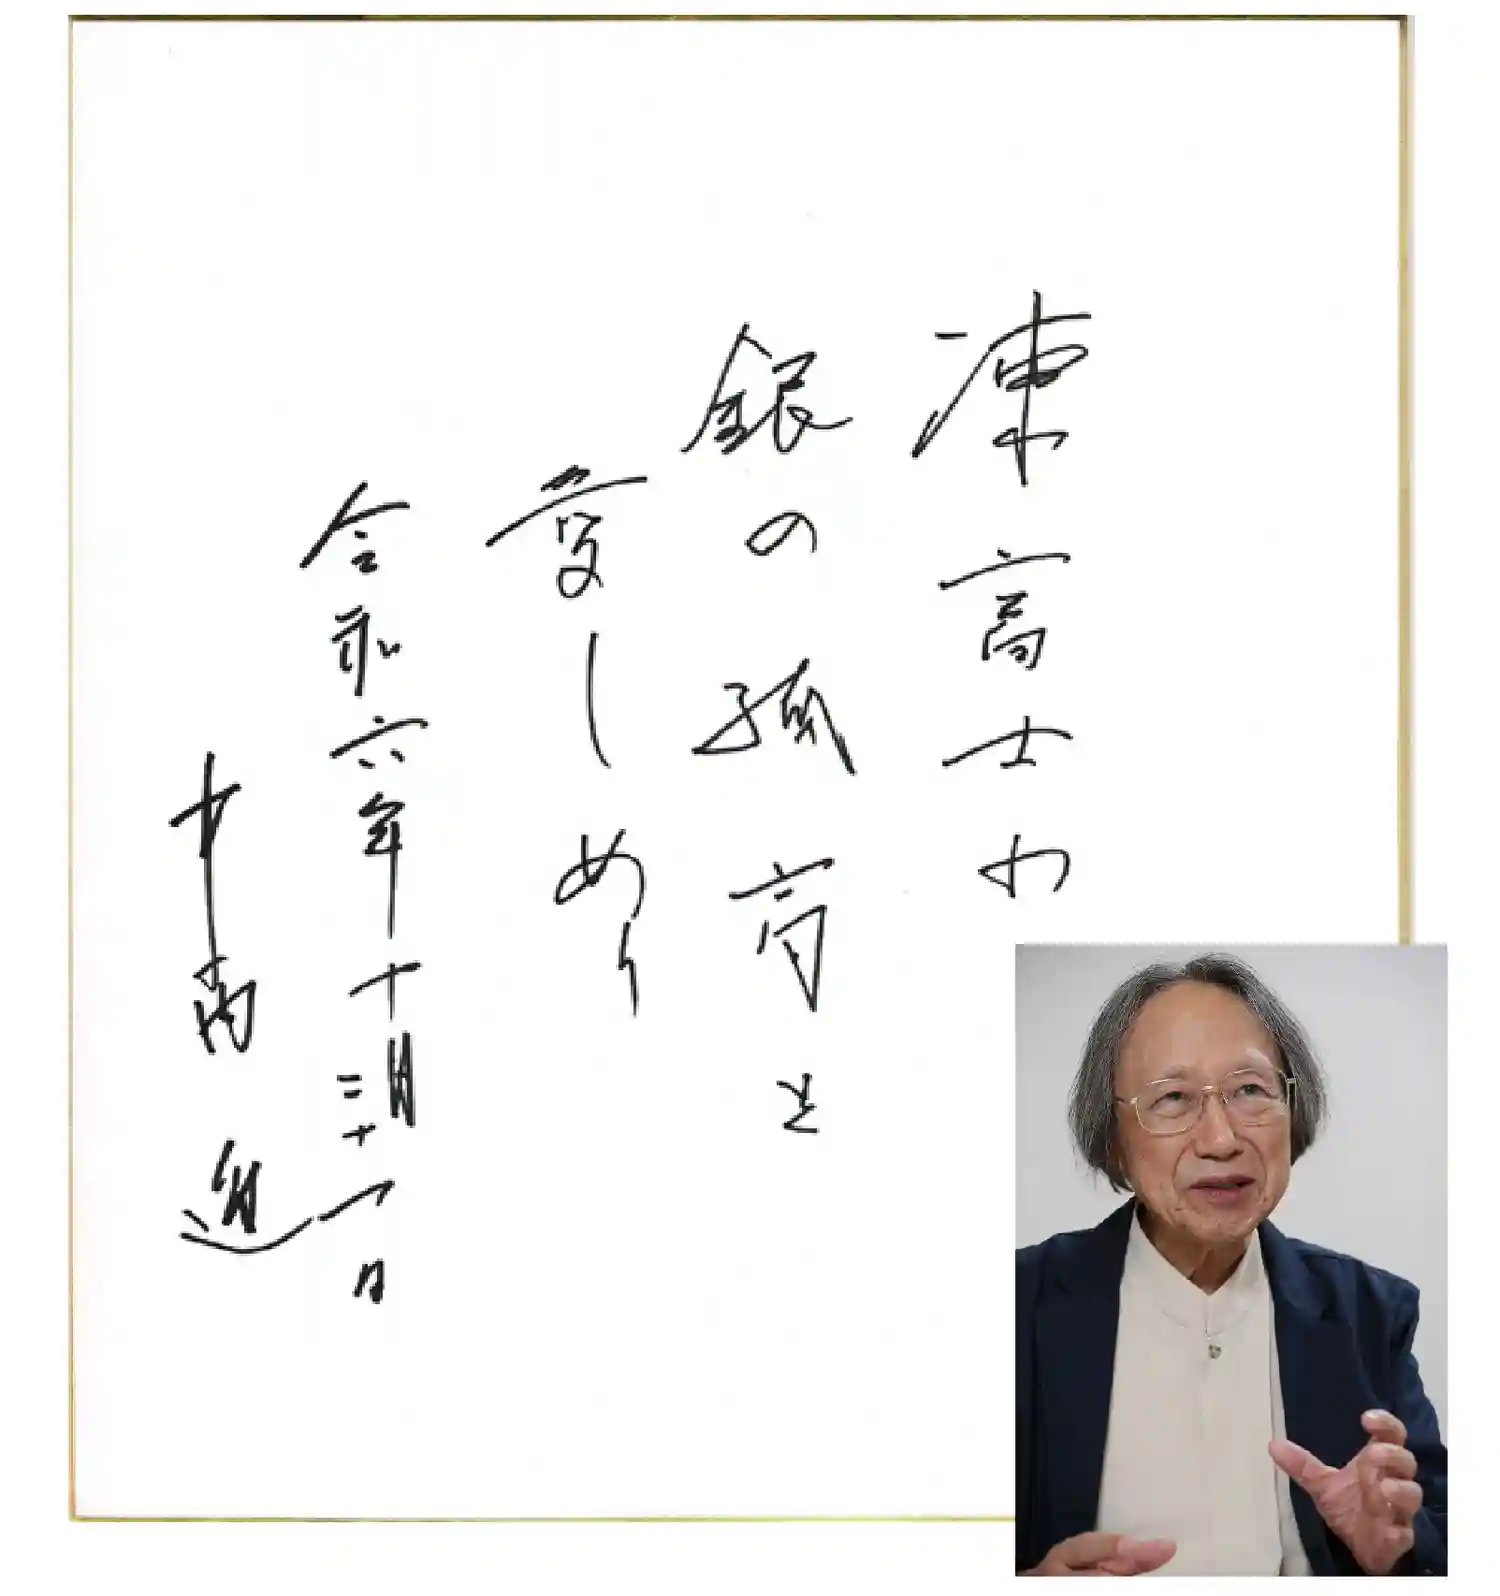 凍富士や
銀の孤高を
愛しめり
令和六年十月十一日
中西 進